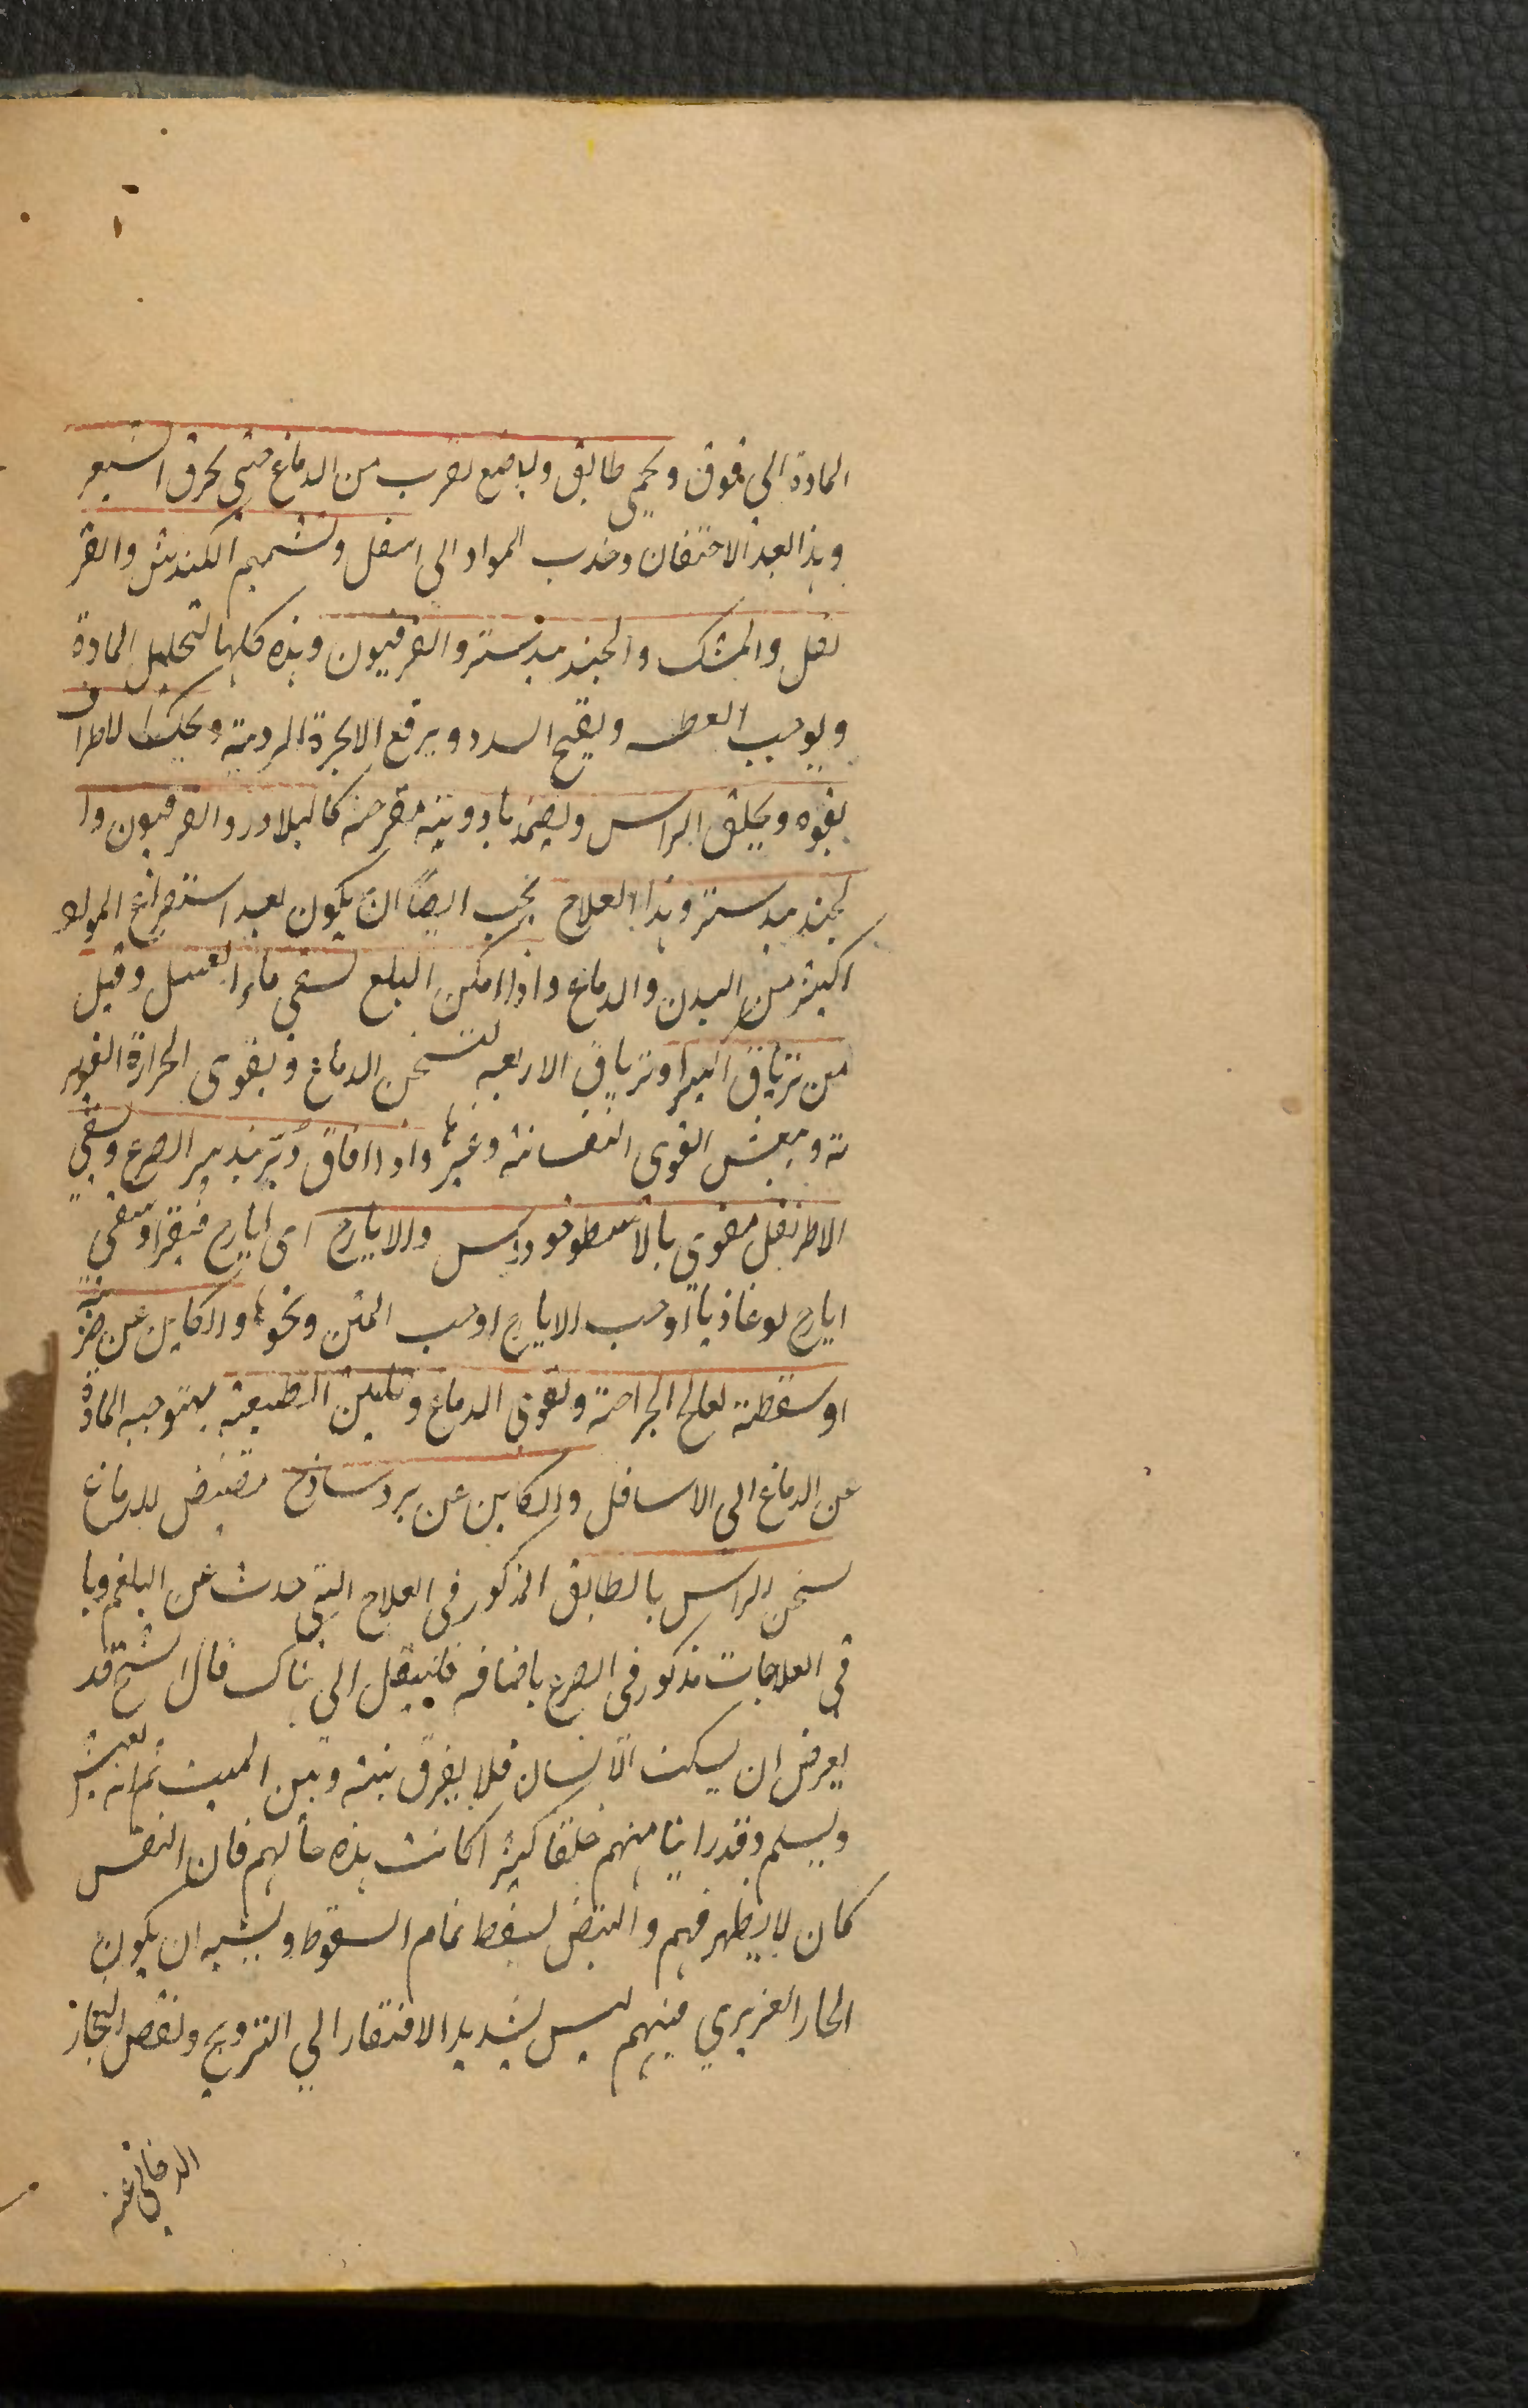 المادة الى فوق ويحمى طابق وياضع بقرب من الدماغ حتى يحرق الشعر
وهذا بعد الاحتقان وجذب المواد الى اسفل وتشميم الكندش والقر
نفل والمسك والجندبيدستر والفرفيون وهذه كلها لتحليل المادة
ويوجب العطسه ويفتح السدد ويرفع الابخرة الردية ويحك الاطراف
بقوه ويحلق الراس ويضمد بادوية مقرحة كالبلادر والفرفيون وا
لجندبيدستر وهذا العلاج يجب ايضاً ان يكون بعد استفراغ المواد
اكثر من البدن والدماغ واذا امكن البلع سقى ماء العسل وقيل
من ترياق الكبير او ترياق الاربعه لتسخن الدماغ ويقوى الحرارة الغريز
ية وينعش القوى النفسانية وغيرها واذا افاق دبّر بتدبير الصرع وسقى
الاطريفل مقوى بالاسطوخودوس والايارج اى ايارج فيقرا وسقى
ايارج لوغاذيا او حب الايارج او حب المنتن ونحوها والكاين عن ضربة
او سقطة يعالج الجراحة ويقوى الدماغ وتليين الطبيعة بتوجيه المادة
عن الدماغ الى الاسافل والكاين عن برد ساذج مقبض للدماغ
يسخن الراس بالطابق المذكور فى العلاج التى حدث عن البلغم وبا
قى العلاجات مذكور فى الصرع باضافه فلينقل الى هناك قال الشيخ قد
يعرض ان يسكت الانسان فلا يفرق بينه وبين الميت ثم انه يعيش
ويسلم وقد راينا منهم خلقا كثيرا كانت هذه حالهم فان النفس
كان لا يظهر فيهم والنبض يسقط تمام السقوط ويشبه ان يكون
الحار الغريزي فيهم ليس بشديد الافتقار الي الترويح ونفض البخار
الدخانى عنه